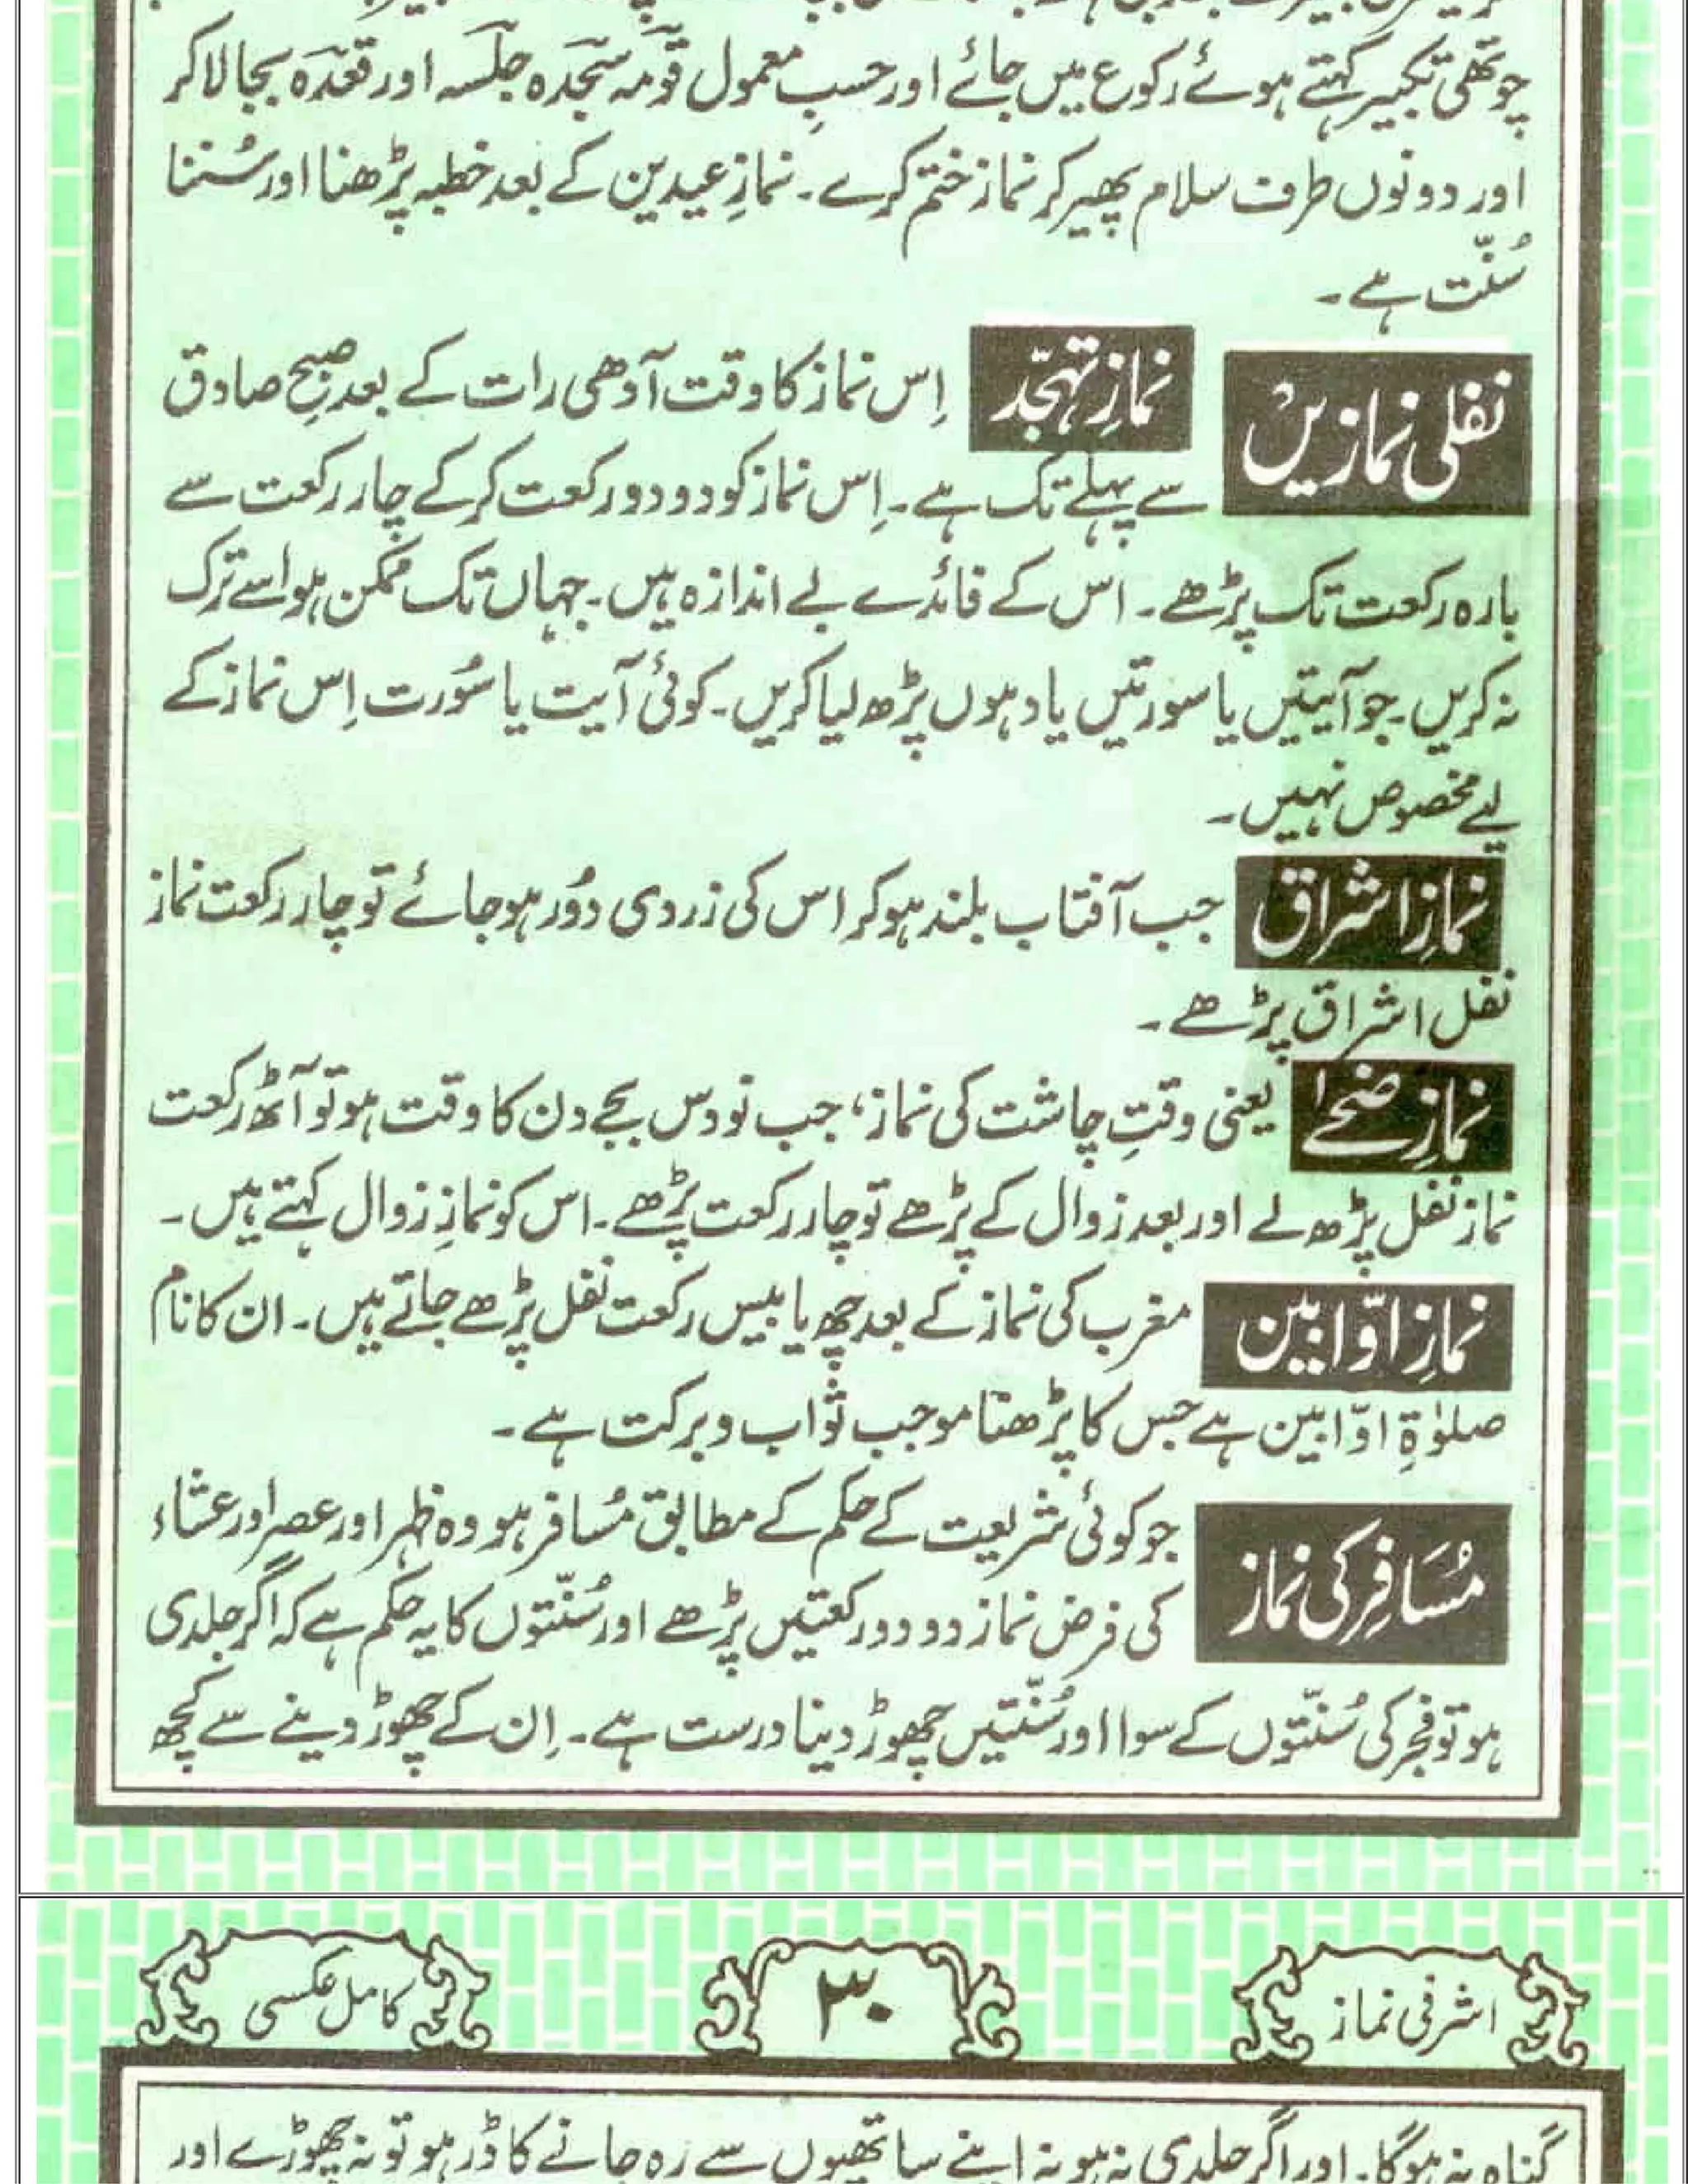 چوتھی تکبیر کہتے ہوئے رکوع میں جائے اور حسبِ معمول قومہ سجدہ جلسہ اور قعدہ بجا لا کر
اور دونوں طرف سلام پھیر کر نماز ختم کرے۔ نمازِ عیدین کے بعد خطبہ پڑھنا اور سُننا
سُنّت ہے۔
نفلی نمازیں
نمازِ تہجّد
اِس نماز کا وقت آدھی رات کے بعد صبحِ صادق
سے پہلے تک ہے۔ اِس نماز کو دو دو رکعت کر کے چار رکعت سے
بارہ رکعت تک پڑھے۔ اس کے فائدے بے اندازہ ہیں۔ جہاں تک ممکن ہو اسے ترک
نہ کریں۔ جو آیتیں یا سورتیں یاد ہوں پڑھ لیا کریں۔ کوئی آیت یا سُورت اِس نماز کے
لیے مخصوص نہیں۔
نمازِ اشراق
جب آفتاب بلند ہو کر اس کی زردی دُور ہو جائے تو چار رکعت نماز
نفل اشراق پڑھے۔
نمازِ ضحےٰ
یعنی وقتِ چاشت کی نماز، جب نو دس بجے دن کا وقت ہو تو آٹھ رکعت
نماز نفل پڑھ لے اور بعد زوال کے پڑھے تو چار رکعت پڑھے۔ اس کو نمازِ زوال کہتے ہیں۔
نمازِ اوّابین
مغرب کی نماز کے بعد چھ یا بیس رکعت نفل پڑھے جاتے ہیں۔ ان کا نام
صلوٰۃِ اوّابین ہے جس کا پڑھنا موجب ثواب و برکت ہے۔
مُسَافِر کی نماز
جو کوئی شریعت کے حکم کے مطابق مُسافر ہو وہ ظہر اور عصر اور عشاء
کی فرض نماز دو دو رکعتیں پڑھے اور سُنّتوں کا یہ حکم ہے کہ اگر جلدی
ہو تو فجر کی سُنّتوں کے سوا اور سُنّتیں چھوڑ دینا درست ہے۔ اِن کے چھوڑ دینے سے کچھ
اشرفی نماز
۳۰
کامل عکسی
گناہ نہ ہوگا۔ اور اگر جلدی نہ ہو نہ اپنے ساتھیوں سے رہ جانے کا ڈر ہو تو نہ چھوڑے اور